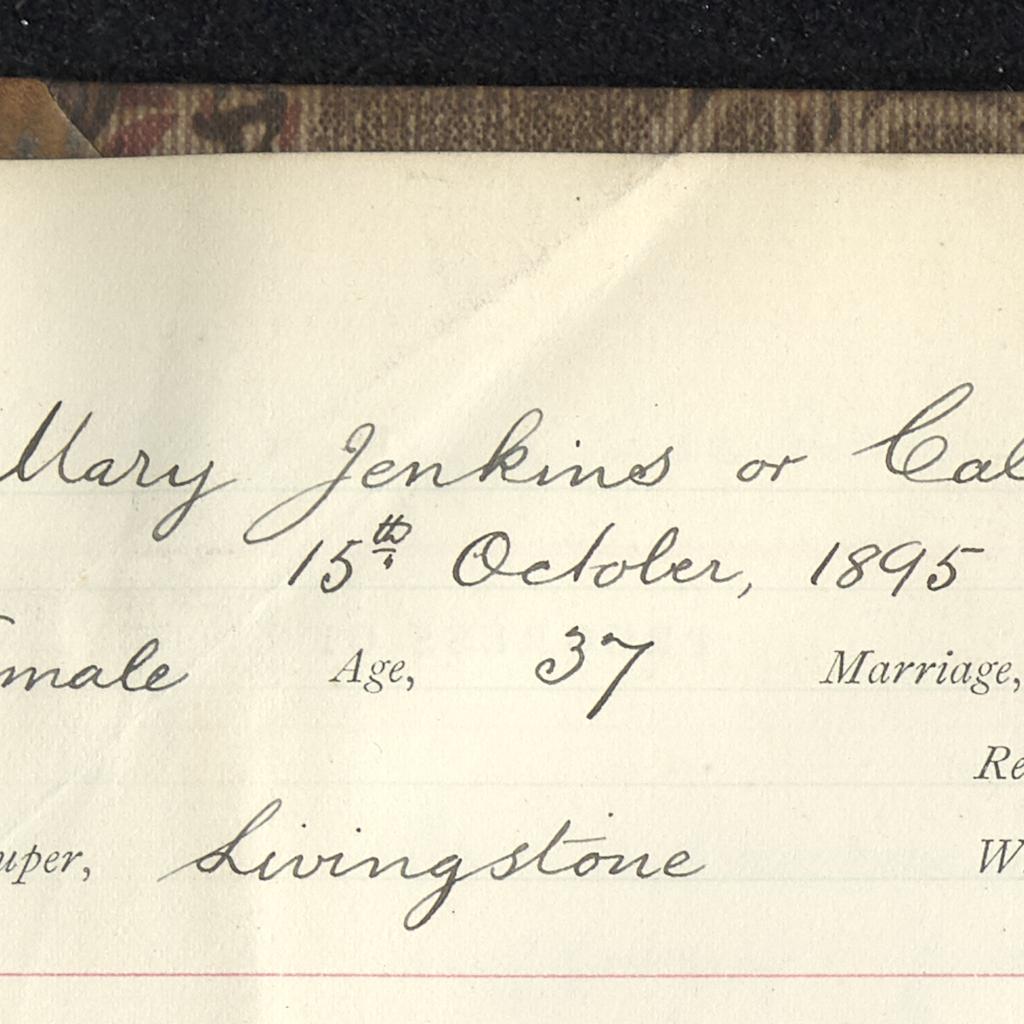 Mary Jenkins or Cal
15th October, 1895
male Age, 37 Marriage,
Re
uper, Livingstone W